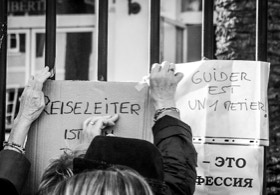 REISELEITER
IST
GUIDER
EST
UN METIER
- ЭТО
ФЕССИЯ